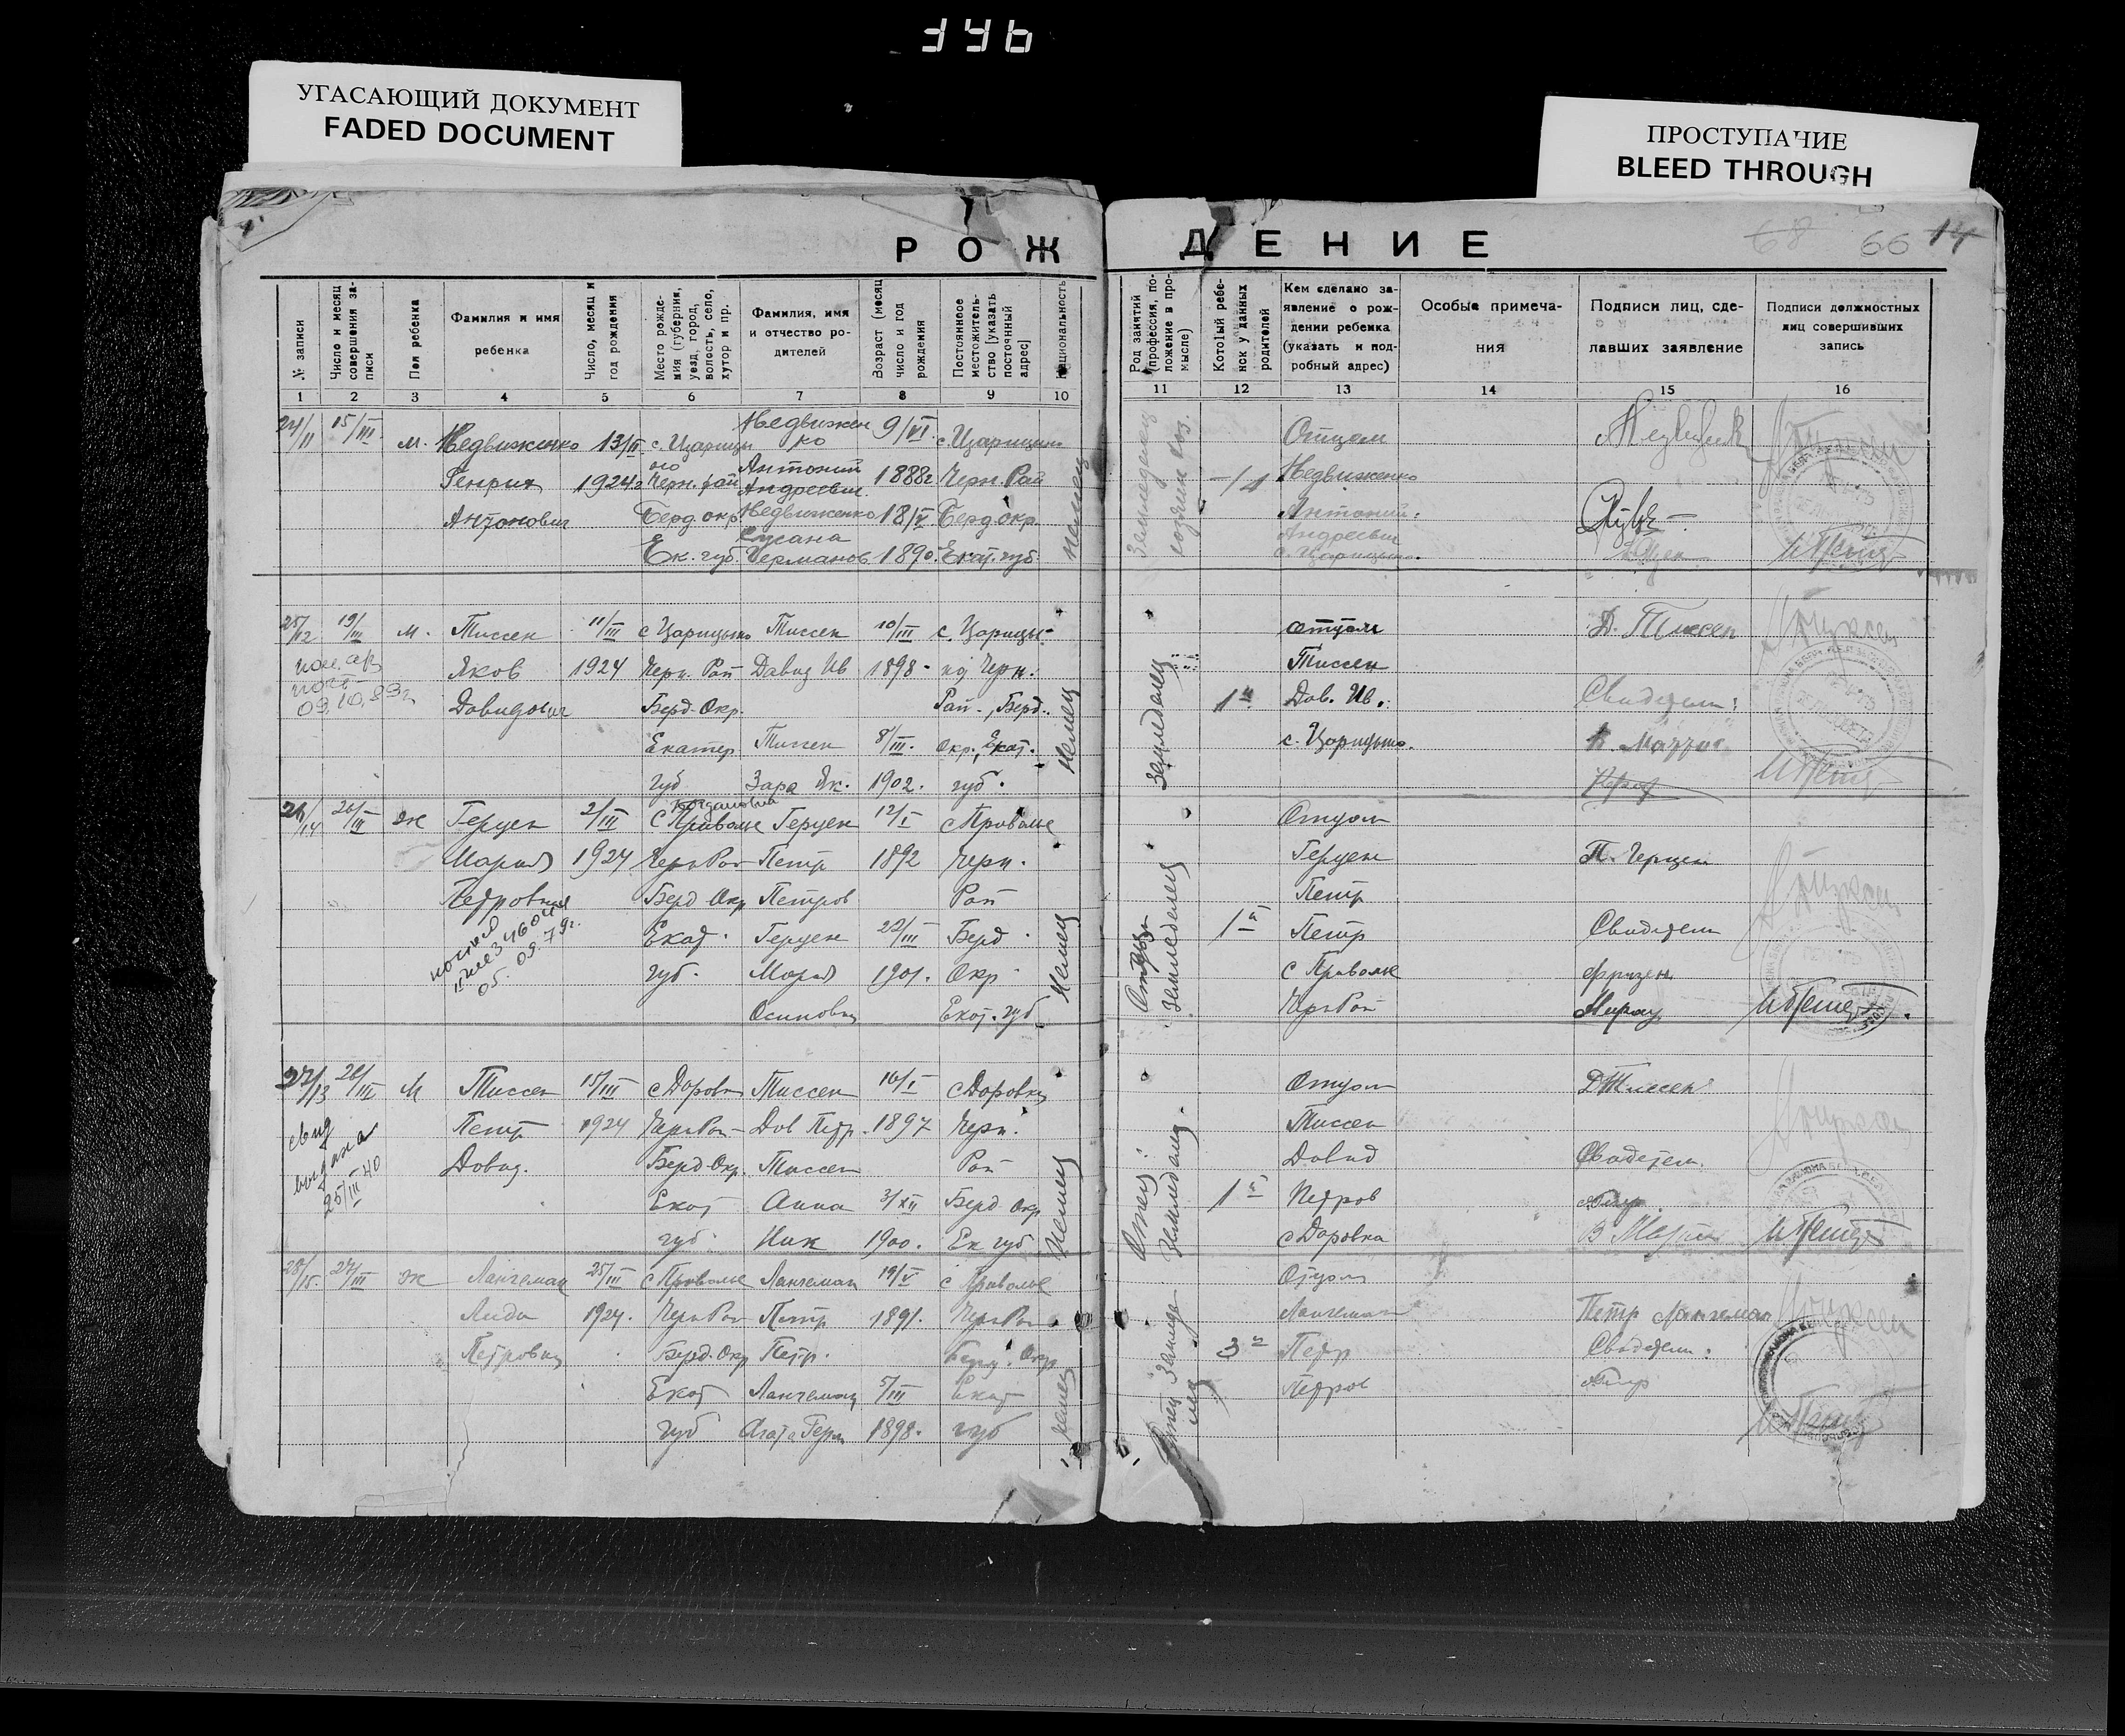 346
УГАСАЮЩИЙ ДОКУМЕНТ
FADED DOCUMENT
ПРОСТУПАНИЕ
BLEED THROUGH
РОЖДЕНИЕ
68 66 14
№ записи
Число и месяц совершения записи
Пол ребенка
Фамилия и имя ребенка
Число, месяц и год рождения
Место рождения (губерния, уезд, город, волость, село, хутор и пр.
Фамилия, имя и отчество родителей
Возраст (месяц число и год рождения
Постоянное местожительство [указать посточный адрес]
Национальность
Род занятий (профессия, положение в промысле)
Который ребенок у данных родителей
Кем сделано заявление о рождении ребенка (указать и подробный адрес)
Особые примечания
Подписи лиц, сделавших заявление
Подписи должностных лиц совершивших запись
1 2 3 4 5 6 7 8 9 10 11 12 13 14 15 16
24/11 15/III м. Недвиженко 13/II с. Царицыно Недвиженко 9/VI с. Царицыно Отцом
Генрих 1924г Черн. рай Антоний Андреевич 1888г Черн. Рай Недвиженко
Антонович Берд. окр. Недвиженко 18/V Берд окр. Антоний
Сусана Андреевич
Ек. губ. Германов. 1890. Екат. губ. с. Царицыно.
немец
25/12 19/III м. Тиссен 11/III с Царицыно Тиссен 10/III с. Царицы- отцом Д. Тиссен
Яков 1924 Черн. Рай Давид Ив 1898 но Черн. Тиссен
09.10.89г Давидович Берд. Окр. Рай., Берд. 1й Дав. Ив. Свидетели:
Екатер. Тиссен 8/III. окр., Екат. с. Царицыно.
губ Зара Як. 1902. губ.
немец Земледелец
26/14 26/III ж Герцен 2/III с Приволье Герцен 12/I с Приволье Отцом
Мария 1924 Черн Рай Петр 1892 Черн. Герцен П. Герцен
Петровна Берд Окр Петров Рай Петр
Екат. Герцен 22/III Берд 1й Петр Свидетели
губ. Мария 1901. Окр с Приволье Фризен
05.09.79г. Осиповна Екат. губ Черн Рай
Немец Земледелец
27/13 26/III М Тиссен 15/III с Даровка Тиссен 16/I с Даровка Отцом Д Тиссен
Петр 1924 Черн Рай Дав Петр. 1897 Черн. Тиссен
Давид. Берд Окр. Тиссен Рай Давид Свидетели
свид выдана 25/III 40 Екат Анна 3/XII Берд Окр 1й Петров
губ. Ник 1900. Ек губ с Даровка
Немец Отец: Земледелец.
28/15. 27/III ж Лангеман 25/III с Приволье Лангеман 19/V с Приволье Отцом
Лида 1924. Черн Рай Петр 1891. Черн Рай Лангеман Петр Лангеман
Петровна Берд. Окр Петр. Берд. Окр 3й Петр Свидетели:
Екат Лангеман 5/III Екат Петров
губ Агата Герм 1898. губ
немец Отец Земледелец